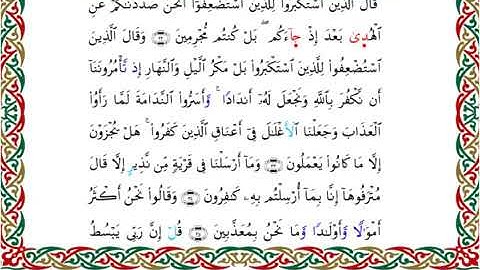 قَالَ ٱلَّذِينَ ٱسْتَكْبَرُوا۟ لِلَّذِينَ ٱسْتُضْعِفُوٓا۟ أَنَحْنُ صَدَدْنَٰكُمْ عَنِ
ٱلْهُدَىٰ بَعْدَ إِذْ جَآءَكُم ۖ بَلْ كُنتُم مُّجْرِمِينَ ﴿٣٢﴾ وَقَالَ ٱلَّذِينَ
ٱسْتُضْعِفُوا۟ لِلَّذِينَ ٱسْتَكْبَرُوا۟ بَلْ مَكْرُ ٱلَّيْلِ وَٱلنَّهَارِ إِذْ تَأْمُرُونَنَآ
أَن نَّكْفُرَ بِٱللَّهِ وَنَجْعَلَ لَهُۥٓ أَندَادًا ۚ وَأَسَرُّوا۟ ٱلنَّدَامَةَ لَمَّا رَأَوُا۟
ٱلْعَذَابَ وَجَعَلْنَا ٱلْأَغْلَٰلَ فِىٓ أَعْنَاقِ ٱلَّذِينَ كَفَرُوا۟ ۚ هَلْ يُجْزَوْنَ
إِلَّا مَا كَانُوا۟ يَعْمَلُونَ ﴿٣٣﴾ وَمَآ أَرْسَلْنَا فِى قَرْيَةٍ مِّن نَّذِيرٍ إِلَّا قَالَ
مُتْرَفُوهَآ إِنَّا بِمَآ أُرْسِلْتُم بِهِۦ كَٰفِرُونَ ﴿٣٤﴾ وَقَالُوا۟ نَحْنُ أَكْثَرُ
أَمْوَٰلًا وَأَوْلَٰدًا وَمَا نَحْنُ بِمُعَذَّبِينَ ﴿٣٥﴾ قُلْ إِنَّ رَبِّى يَبْسُطُ